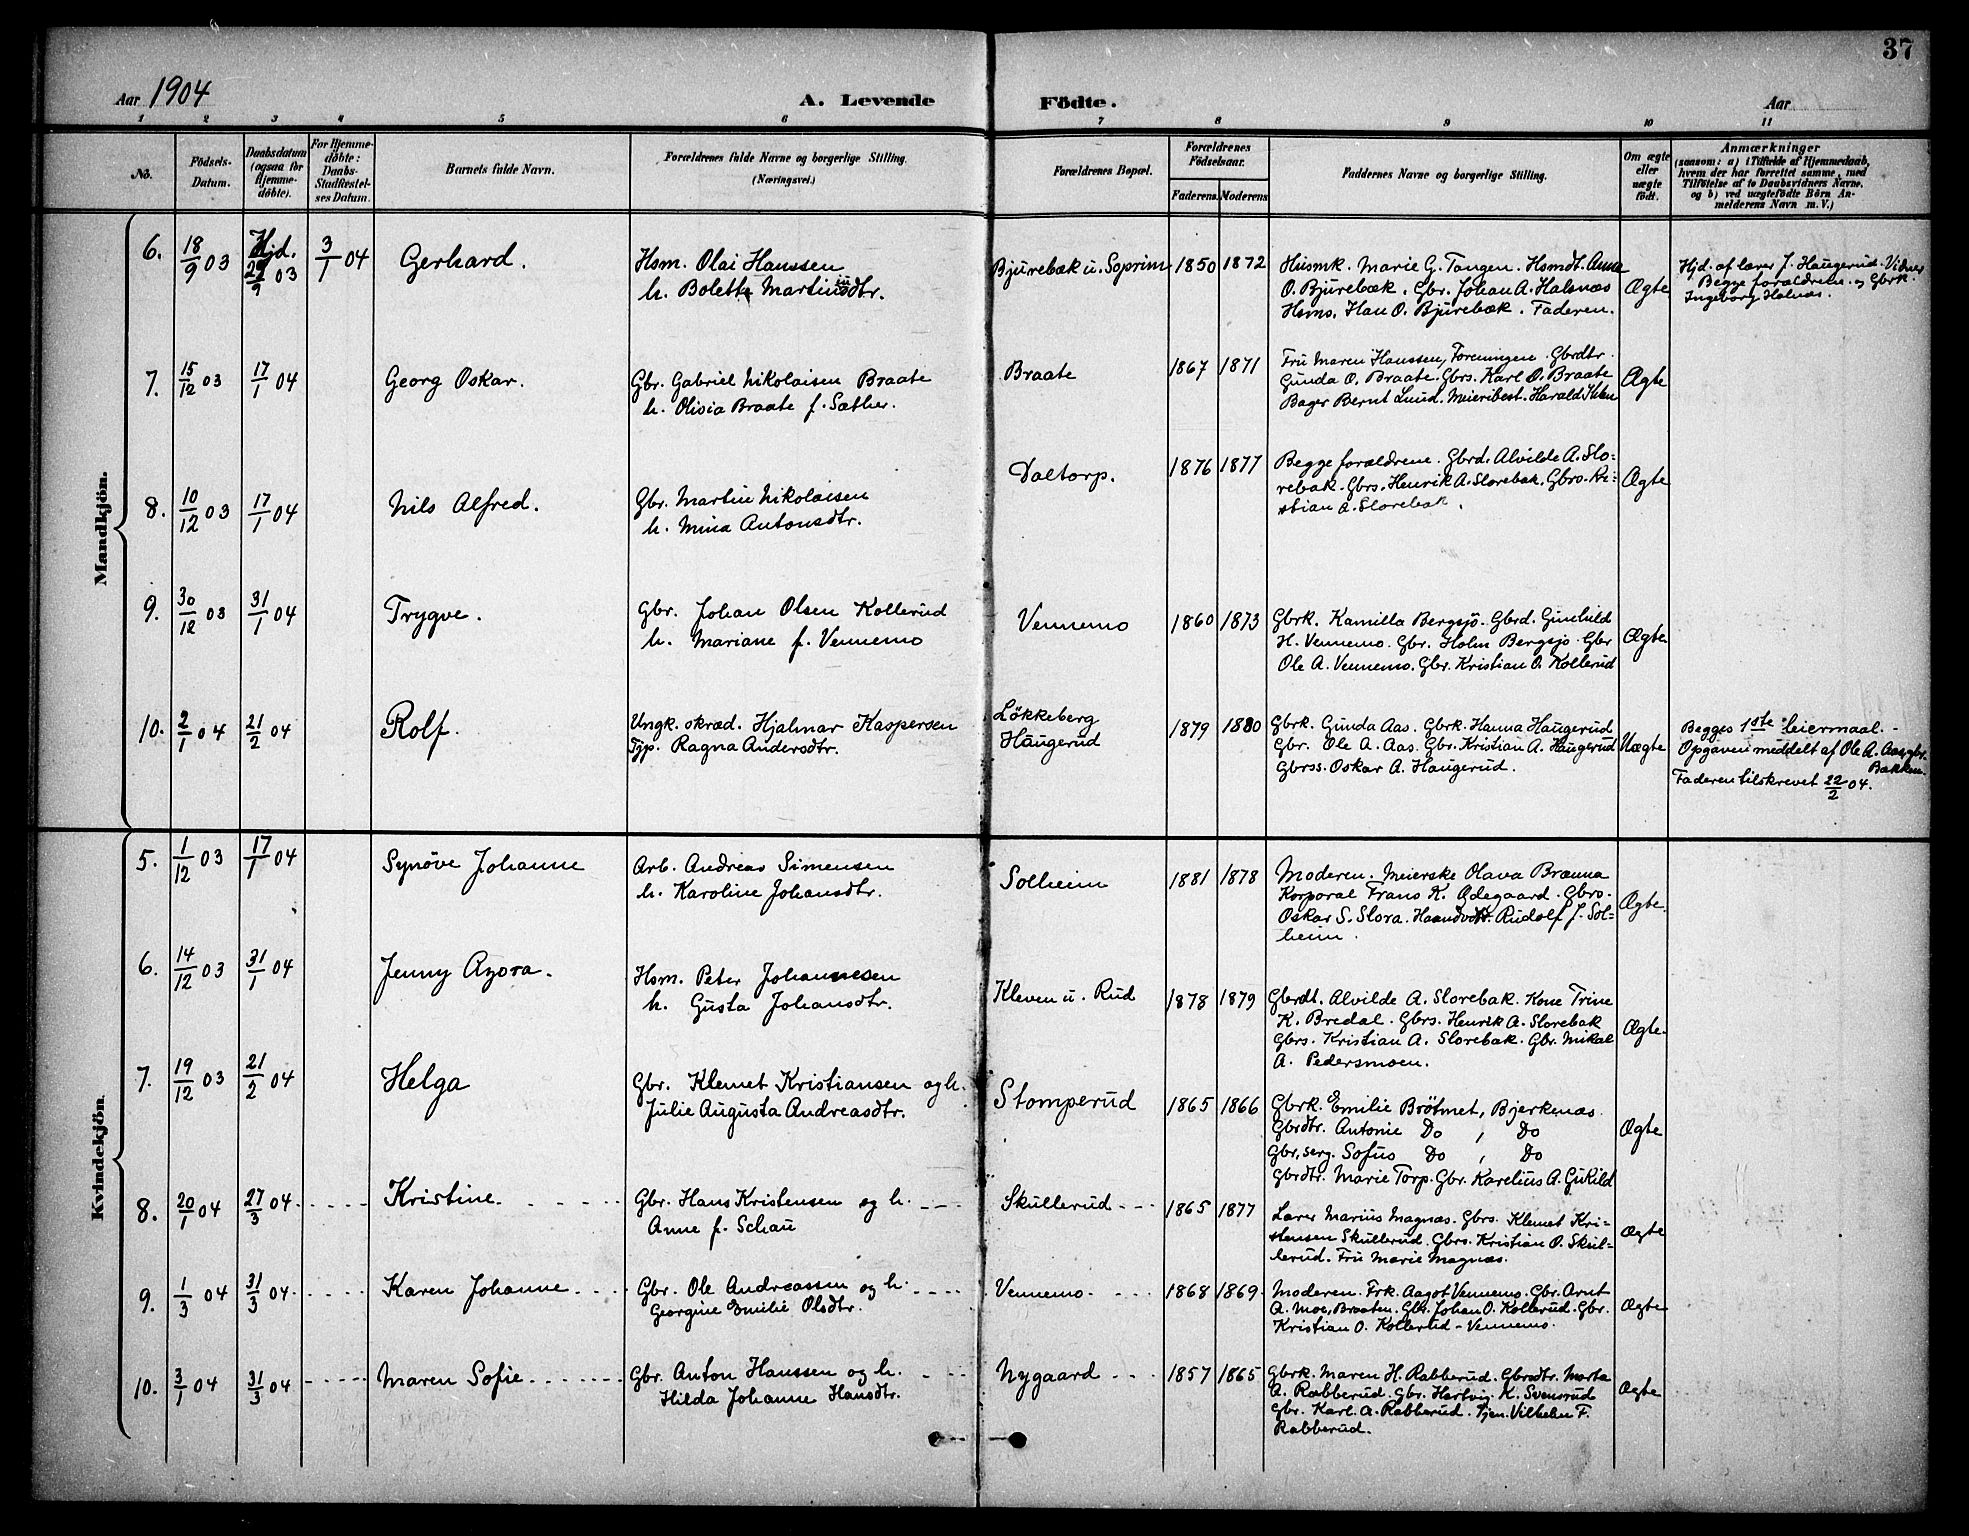 37
Aar 1904
A. Levende
Födte.
Aar
1 2 3 4 5 6 7 8 9 10 11
No.
Födsels-
Datum.
Daabsdatum
(ogsaa for
Hjemme-
döbte).
For Hjemme-
döbte:
Daabs-
Stadfæstel-
ses Datum.
Barnets fulde Navn.
Forældrenes fulde Navne og borgerlige Stilling.
(Næringsvei.)
Forældrenes Bopæl.
Forældrenes
Födselsaar.
Faderens. Moderens
Faddernes Navne og borgerlige Stilling.
Om ægte
eller
uægte
födt.
Anmærkninger
(saasom: a) i Tilfælde af Hjemmedaab,
hvem der har forrettet samme, med
Tilföielse af to Daabsvidners Navne,
og b) ved uægtefödte Börn An-
melderens Navn m. V.)
Mandkjön.
6. 18/9 03 Hjd. 29/9 03 3/1 04 Gerhard.
Hsm. Olai Hanssen
h. Bolette Martinsdtr.
Bjurebæk u. Soprim 1850 1872
Husmk. Marie G. Tangen. Hsmdt. Anna
O. Bjurebæk. Gbr. Johan A. Halsnæs
Hsms. Han O. Bjurebæk. Faderen.
Ægte
Hjd. af lærer J. Haugerud. Vidner
Begge forældrene og Gbrk.
Ingeborg Holnæs.
7. 15/12 03 17/1 04 Georg Oskar.
Gbr. Gabriel Nikolaisen Braate
h. Olisia Braate f. Sæther.
Braate 1867 1871
Fru Maren Hanssen, Foreningen. Gbrdtr.
Gunda O. Braate. Gbrs. Karl O. Braate
Bager Bernt Lund. Meieribest. Harald
Ægte
8. 10/12 03 17/1 04 Nils Alfred.
Gbr. Martin Nikolaisen
h. Mina Antonsdtr.
Daltorp. 1876 1877
Begge forældrene. Gbrd. Alvilde A. Slo-
rebak. Gbrs. Henrik A. Slorebak. Gbrs. Kri-
stian A. Slorebak.
Ægte
9. 30/12 03 31/1 04 Trygve.
Gbr. Johan Olsen Kollerud
h. Mariane f. Vennemo
Vennemo 1860 1873
Gbrk. Kamilla Bergsjö. Gbrd. Gunhild
H. Vennemo. Gbr. Holm Bergsjö. Gbr
Ole A. Vennemo. Gbr. Kristian O. Kollerud
Ægte
10. 2/1 04 21/2 04 Rolf.
Ungk. skræd. Hjalmar Kaspersen
Pige Ragna Andersdtr.
Løkkeberg
Haugerud
1879 1880
Gbrk. Gunda Aas. Gbrk. Hanna Haugerud
Gbr. Ole A. Aas. Gbr. Kristian A. Haugerud
Gbrss. Oskar A. Haugerud.
Uægte
Begges 1ste leiermaal.-
Opgaven meddelt af Ole A. Aas, gbr.
Bakken.
Faderen tilskrevet 22/2 04.
Kvindekjön.
5. 1/12 03 17/1 04 Synöve Johanne
Arb. Andreas Simensen
h. Karoline Johansdtr.
Solheim 1881 1878
Moderen. Meierske Olava Brænna
Korporal Frans K. Ødegaard. Gbrs.
Oskar S. Slora. Haandv. Rudolf J. Sol-
heim.
Ægte.
6. 14/12 03 31/1 04 Jenny Azora.
Hsm. Peter Johannesen
h. Gusta Johansdtr.
Kleven u. Rud 1878 1879
Gbrdt. Alvilde A. Slorebak. Kone Trine
K. Bredal. Gbrs. Henrik A. Slorebak
Gbrs. Kristian A. Slorebak. Gbr. Mikal
A. Pedersmoen.
Ægte.
7. 19/12 03 21/2 04 Helga
Gbr. Klemet Kristiansen og h.
Julie Augusta Andreasdtr.
Stomperud 1865 1866
Gbrk. Emilie Brötmet, Bjerkenæs.
Gbrdtr. Antonie Do , Do
Gbr, serg. Sofus Do , Do
Gbrdtr. Marie Torp. Gbr. Karelius A. Gukild
Ægte
8. 20/1 04 27/3 04 Kristine.
Gbr. Hans Kristensen og h.
Anne f. Schau
Skullerud 1865 1877
Lærer Marius Magnæs. Gbrs. Klemet Kri-
stensen Skullerud. Gbrs. Kristian O. Skul-
lerud. Fru Marie Magnæs.
Ægte
9. 1/3 04 31/3 04 Karen Johanne
Gbr. Ole Andreassen og h.
Georgine Emilie Olsdtr.
Vennemo 1868 1869
Moderen. Frk. Aagot Vennemo. Gbr. Arnt
A. Moe, Braaten. Gbr. Johan O. Kollerud. Gbr.
Kristian O. Kollerud - Vennemo.
Ægte
10. 3/1 04 31/3 04 Maren Sofie
Gbr. Anton Hanssen og h.
Hilda Johanne Hansdtr.
Nygaard 1857 1865
Gbrk. Maren H. Rabberud. Gbrdtr. Marta
A. Rabberud. Gbr. Hartvig K. Svensrud
Gbr. Karl. A. Rabberud. Tjen. Vilhelm F.
Rabberud.
Ægte